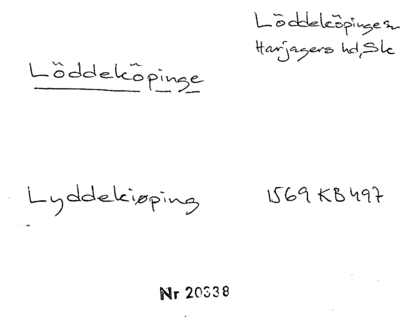 Löddeköpinge sn
Harjagers hd, Sk
Löddeköpinge
Lyddekiøping 1569 KB 497
Nr 20338